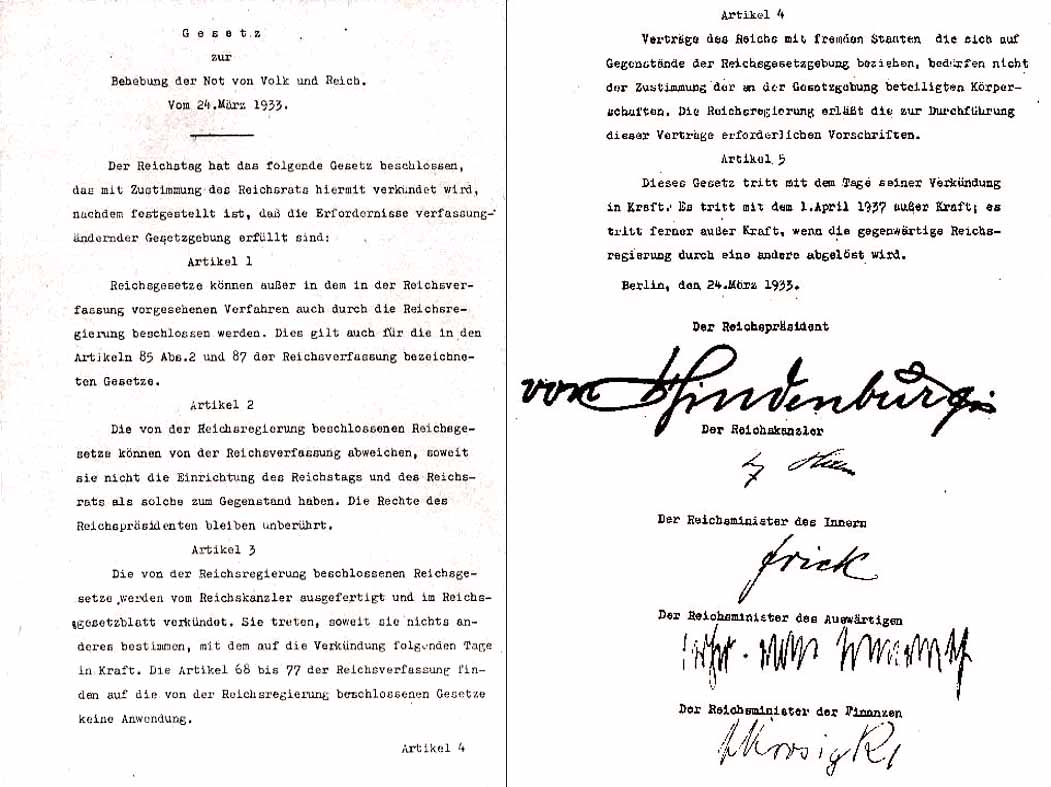 Gesetz
zur
Behebung der Not von Volk und Reich.
Vom 24.März 1933.
Der Reichstag hat das folgende Gesetz beschlossen,
das mit Zustimmung des Reichsrats hiermit verkündet wird,
nachdem festgestellt ist, daß die Erfordernisse verfassung-
ändernder Gesetzgebung erfüllt sind:
Artikel 1
Reichsgesetze können außer in dem in der Reichsver-
fassung vorgesehenen Verfahren auch durch die Reichsre-
gierung beschlossen werden. Dies gilt auch für die in den
Artikeln 85 Abs.2 und 87 der Reichsverfassung bezeichne-
ten Gesetze.
Artikel 2
Die von der Reichsregierung beschlossenen Reichsge-
setze können von der Reichsverfassung abweichen, soweit
sie nicht die Einrichtung des Reichstags und des Reichs-
rats als solche zum Gegenstand haben. Die Rechte des
Reichspräsidenten bleiben unberührt.
Artikel 3
Die von der Reichsregierung beschlossenen Reichsge-
setze werden vom Reichskanzler ausgefertigt und im Reichs-
gesetzblatt verkündet. Sie treten, soweit sie nichts an-
deres bestimmen, mit dem auf die Verkündung folgenden Tage
in Kraft. Die Artikel 68 bis 77 der Reichsverfassung fin-
den auf die von der Reichsregierung beschlossenen Gesetze
keine Anwendung.
Artikel 4
Artikel 4
Verträge des Reichs mit fremden Staaten die sich auf
Gegenstände der Reichsgesetzgebung beziehen, bedürfen nicht
der Zustimmung der an der Gesetzgebung beteiligten Körper-
schaften. Die Reichsregierung erläßt die zur Durchführung
dieser Verträge erforderlichen Vorschriften.
Artikel 5
Dieses Gesetz tritt mit dem Tage seiner Verkündung
in Kraft. Es tritt mit dem 1.April 1937 außer Kraft; es
tritt ferner außer Kraft, wenn die gegenwärtige Reichs-
regierung durch eine andere abgelöst wird.
Berlin, den 24.März 1933.
Der Reichspräsident
von Hindenburg
Der Reichskanzler
Der Reichsminister des Innern
Frick
Der Reichsminister des Auswärtigen
Der Reichsminister der Finanzen
Krosigk